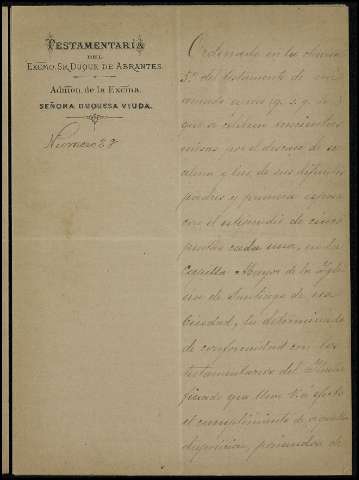 TESTAMENTARÍA
DEL
EXCMO. SR. DUQUE DE ABRANTES.
Admon. de la Excma.
SEÑORA DUQUESA VIUDA.
Numero 28
Ordenado en la clausu
5.ª del testamento de mi
amado esposo (q. s. g. h.)
que se celebren
misas por el descanso de su
alma y las de sus difuntos
padres y primera esposa
con el estipendio de cinco
pesetas cada una, en la
Capilla Mayor de la Igle
sia de Santiago de esa
Ciudad, he determinado
de conformidad con los
testamentarios del Ilustre
finado que lleve V. á efecto
el cumplimiento de aquella
disposicion, poniendose